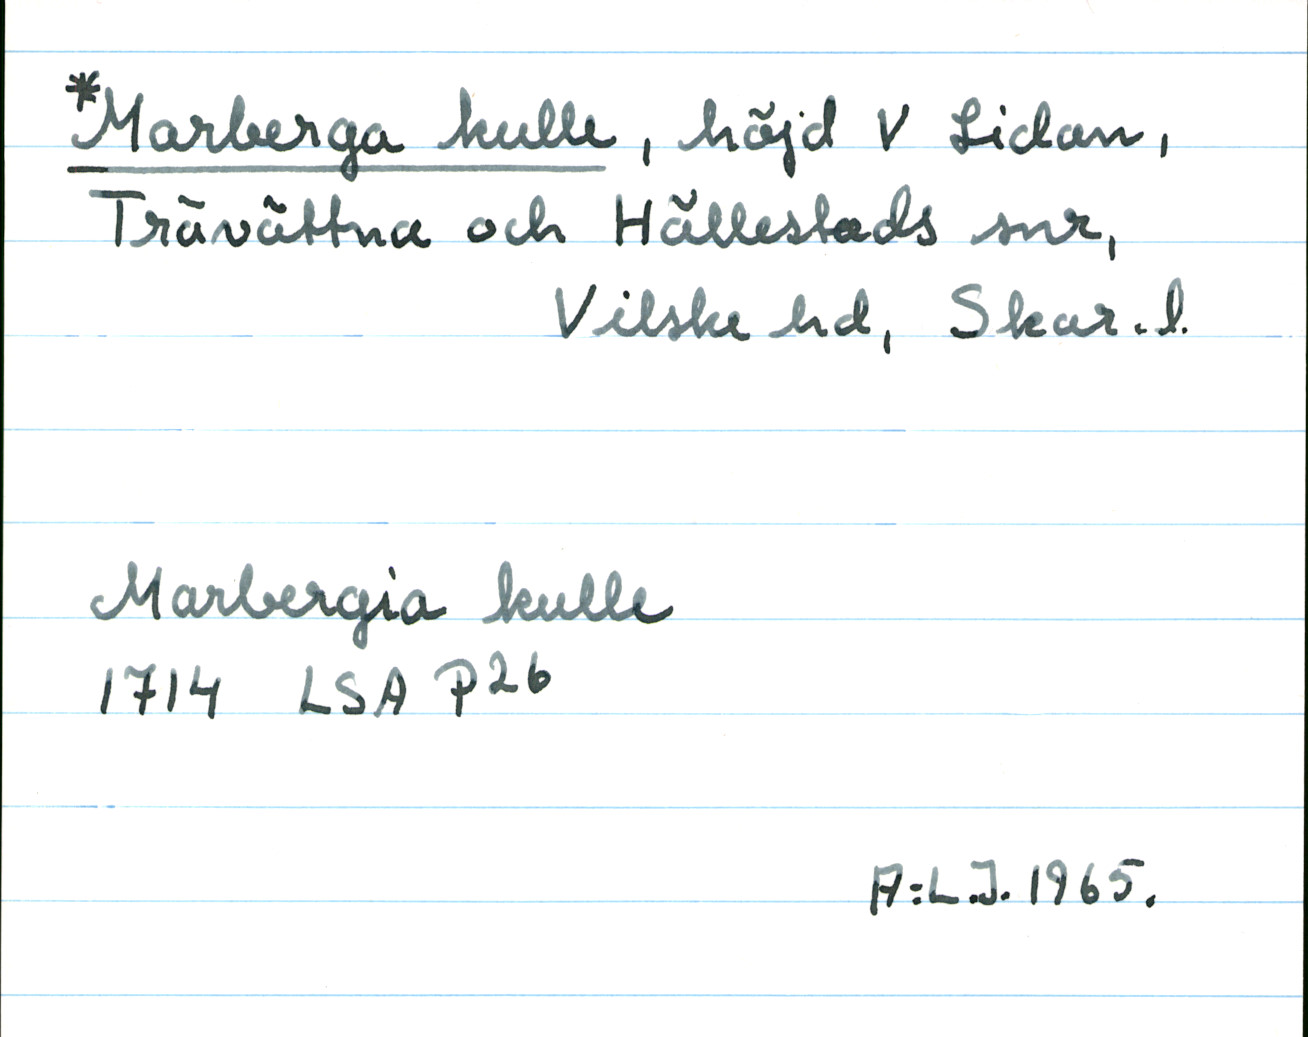 *Marberga kulle, höjd V Lidan,
Trävättna och Hällestads snr,
Vilske hd, Skar. l.
Marbergia kulle
1714 LSA P26
A:L.J. 1965.